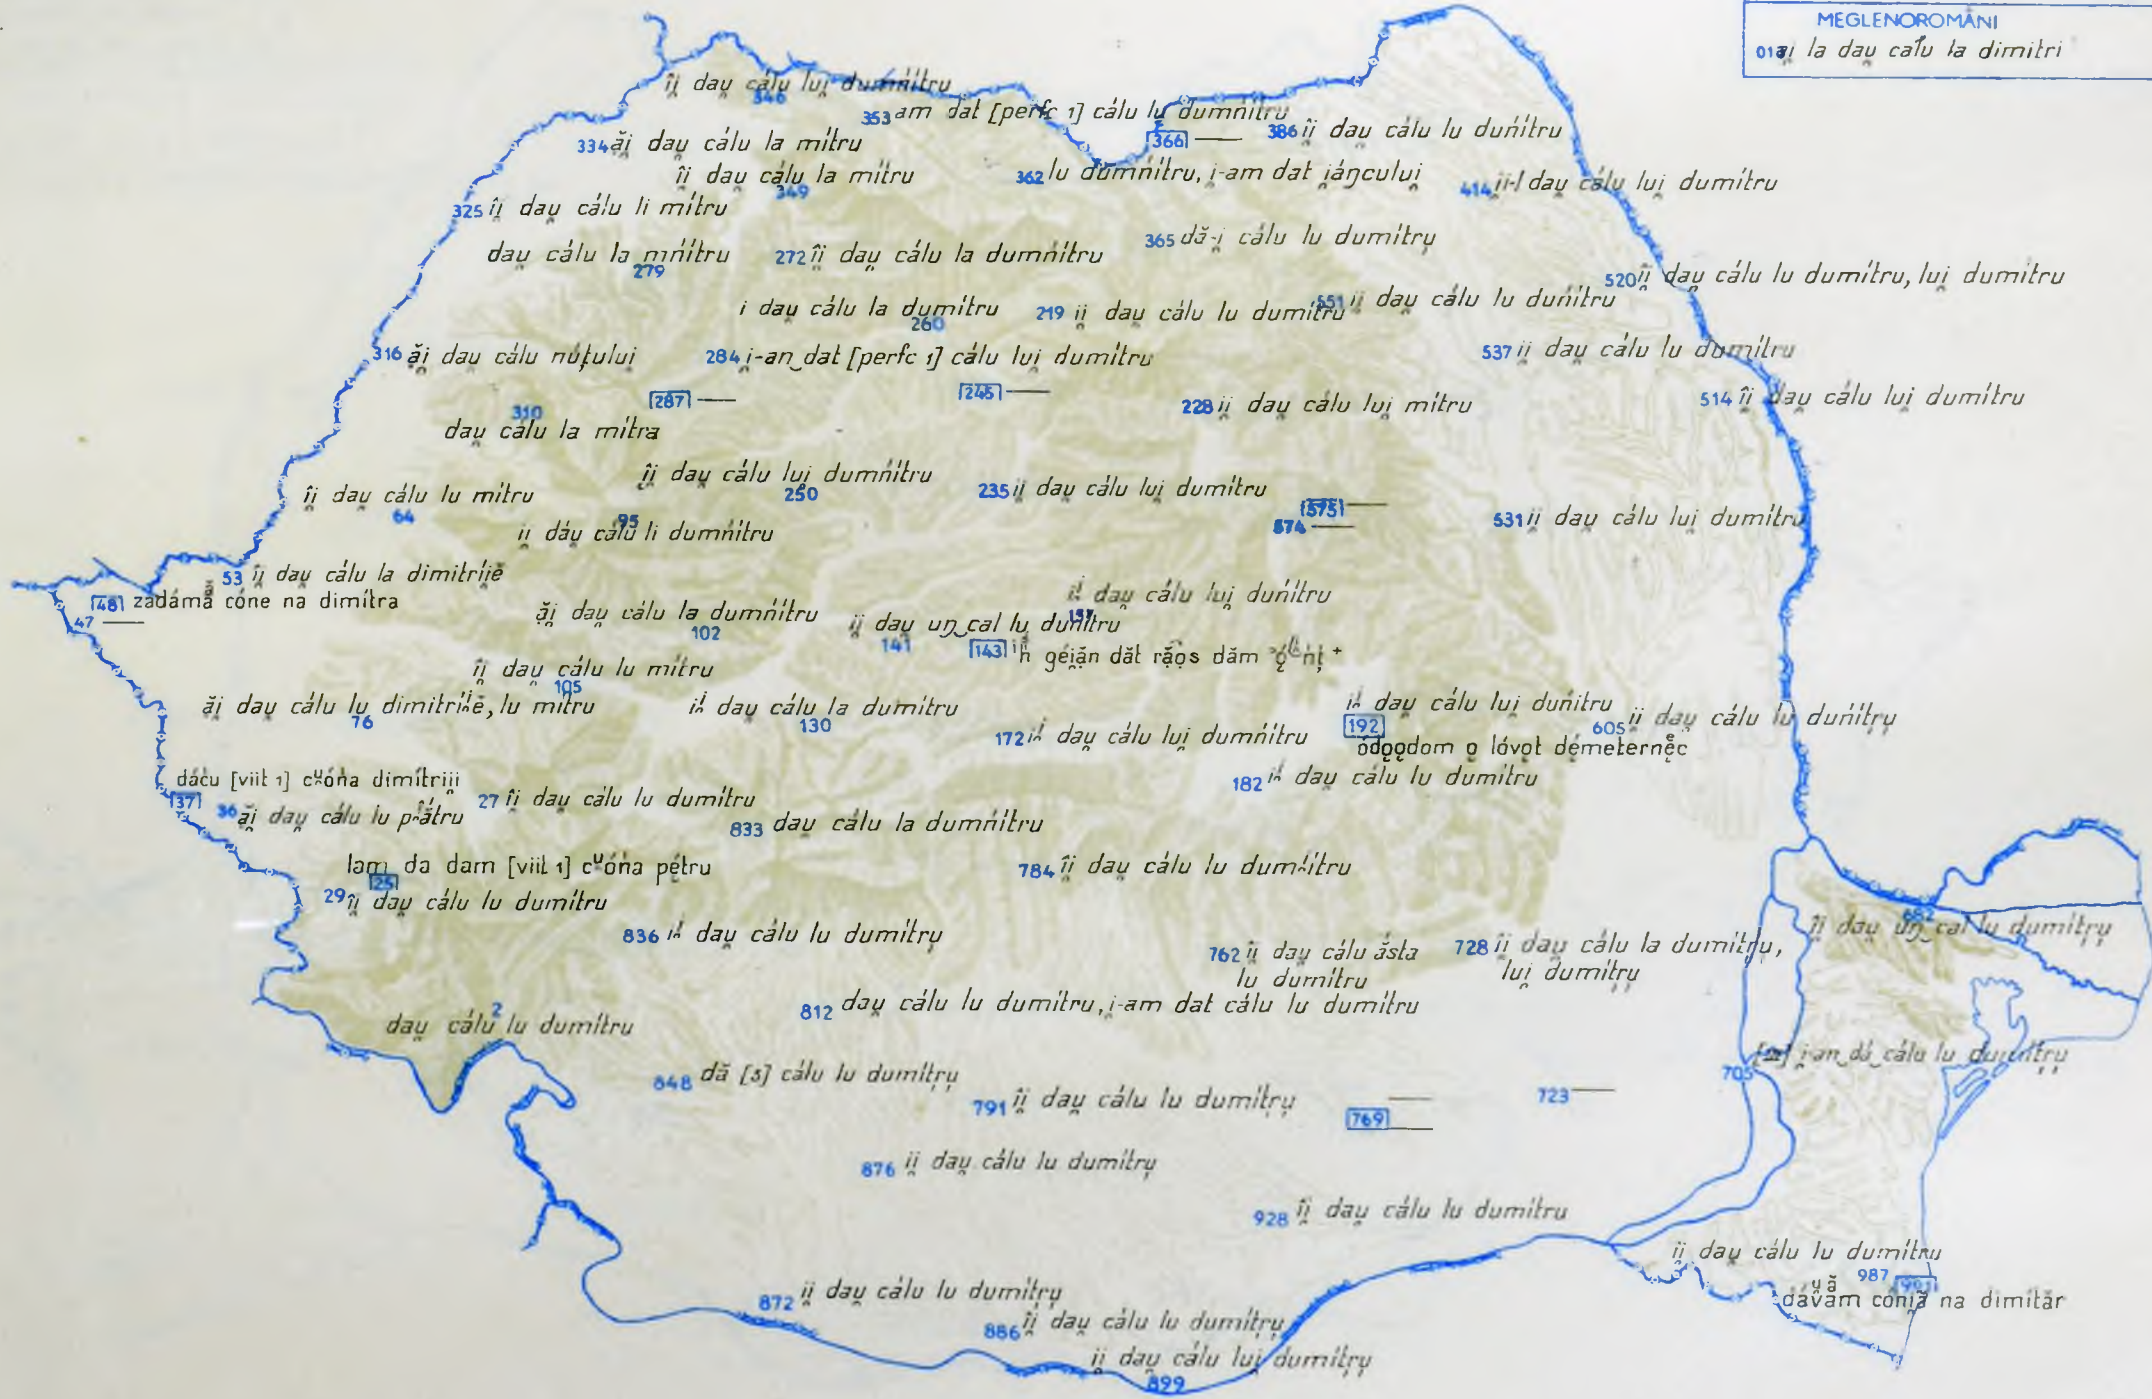 MEGLENOROMÂNI
013 ăi̯ la dau̯ calu la dimitri
îi̯ dau̯ cálu lui̯ dumńítru
346
353 am dat [perfc 1] cálu lu dumńítru
366 —
386 îi̯ dau̯ cálu lu duńítru
334 ăi̯ dau̯ cálu la mítru
îi̯ dau̯ cálu la mítru
349
362 lu dumńítru, i̯-am dat i̯áŋcului̯
414 ii̯-l dau̯ cálu lui̯ dumítru
325 îi̯ dau̯ cálu li mítru
365 dă-i̯ cálu lu dumítru̥
dau̯ cálu la mńítru
279
272 îi̯ dau̯ cálu la dumńítru
520 îi̯ dau̯ cálu lu dumítru, lui̯ dumítru
i dau̯ cálu la dumítru
260
219 ii̯ dau̯ cálu lu dumítru
551 ii̯ dau̯ cálu lu duńítru
316 ăi̯ dau̯ cálu núțului̯
284 i̯-an‿dat [perfc 1] cálu lui̯ dumítru
537 ii̯ dau̯ cálu lu dumítru
287 —
245 —
228 ii̯ dau̯ cálu lui̯ mítru
514 îi̯ dau̯ cálu lui̯ dumítru
310
dau̯ cálu la mítra
îi̯ dau̯ cálu lui̯ dumńítru
250
îi̯ dau̯ cálu lu mítru
64
235 ii̯ dau̯ cálu lui̯ dumítru
575 —
574 —
531 ii̯ dau̯ cálu lui̯ dumítru
95
ii̯ dáu̯ cálu li dumńítru
53 îi̯ dau̯ cálu la dimitríi̯ĕ
48 zadámă cóne na dimítra
47 —
ăi̯ dau̯ cálu la dumńítru
102
dau̯ cálu lui̯ duńítru
157
ii̯ dau̯ uŋ‿cal lu duńítru
141
143 géi̯ăn dăt răo̯s dăm
îi̯ dau̯ cálu lu mítru
105
ăi̯ dau̯ cálu lu dimitríi̯ĕ, lu mítru
76
ii̯ dau̯ cálu la dumítru
130
172 ii̯ dau̯ cálu lui̯ dumńítru
ii̯ dau̯ cálu lui̯ duńítru
192
ódǫgdom ǫ lóvǫt démeternĕc
605 ii̯ dau̯ cálu lu duńítru̥
182 ii̯ dau̯ cálu lu dumítru
dácu [viit 1] cᵘóńa dimítrii̯i
37
36 ăi̯ dau̯ cálu lu pătru
27 îi̯ dau̯ cálu lu dumítru
833 dau̯ cálu la dumńítru
lam da dam [viit 1] cᵘóńa pétru
25
29 îi̯ dau̯ cálu lu dumítru
784 îi̯ dau̯ cálu lu dumńítru
836 ii̯ dau̯ cálu lu dumítru̥
762 îi̯ dau̯ cálu ásta
lu dumítru
728 îi̯ dau̯ cálu la dumítru̥,
lui̯ dumítru̥
682
îi̯ dau̯ uŋ‿cal lu dumítru̥
812 dau̯ cálu lu dumítru, i̯-am dat cálu lu dumítru
2
dau̯ cálu lu dumítru
i̯-an‿dá‿cálu lu dumítru̥
705
848 dă [3] cálu lu dumítru̥
791 îi̯ dau̯ cálu lu dumítru̥
769 —
—
723 —
876 ii̯ dau̯ cálu lu dumítru̥
928 îi̯ dau̯ cálu lu dumítru
ii̯ dau̯ cálu lu dumítru
987
991
dávăm cóni̯ă na dimităr
872 ii̯ dau̯ cálu lu dumítru̥
886 îi̯ dau̯ cálu lu dumítru̥
ii̯ dau̯ cálu lui̯ dumítru̥
899